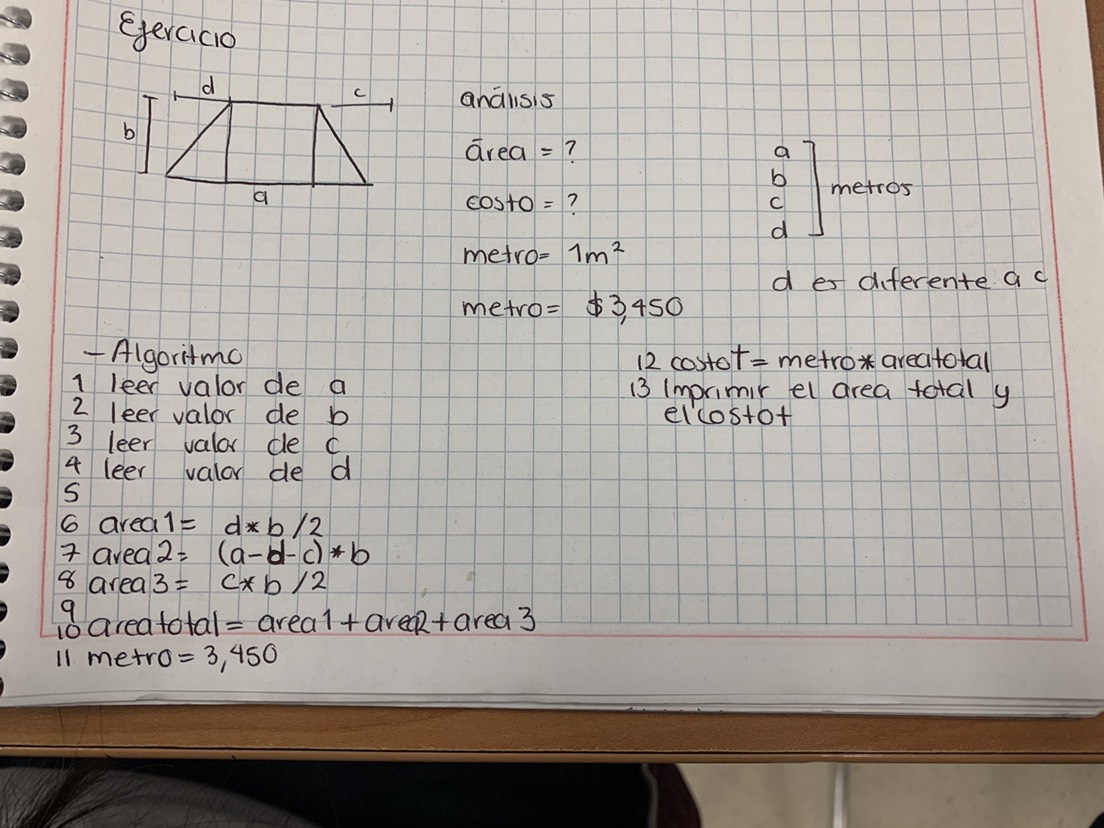 Ejercicio
d
c
b
a
análisis
área = ?
costo = ?
metro= 1m²
metro= $3,450
a
b
c
d
metros
d es diferente a c
- Algoritmo
1 leer valor de a
2 leer valor de b
3 leer valor de c
4 leer valor de d
5
6 area1= d*b/2
7 area2= (a-d-c)*b
8 area3= c*b/2
9
10 areatotal= area1+area2+area3
11 metro=3,450
12 costot= metro*areatotal
13 Imprimir el area total y
el costot